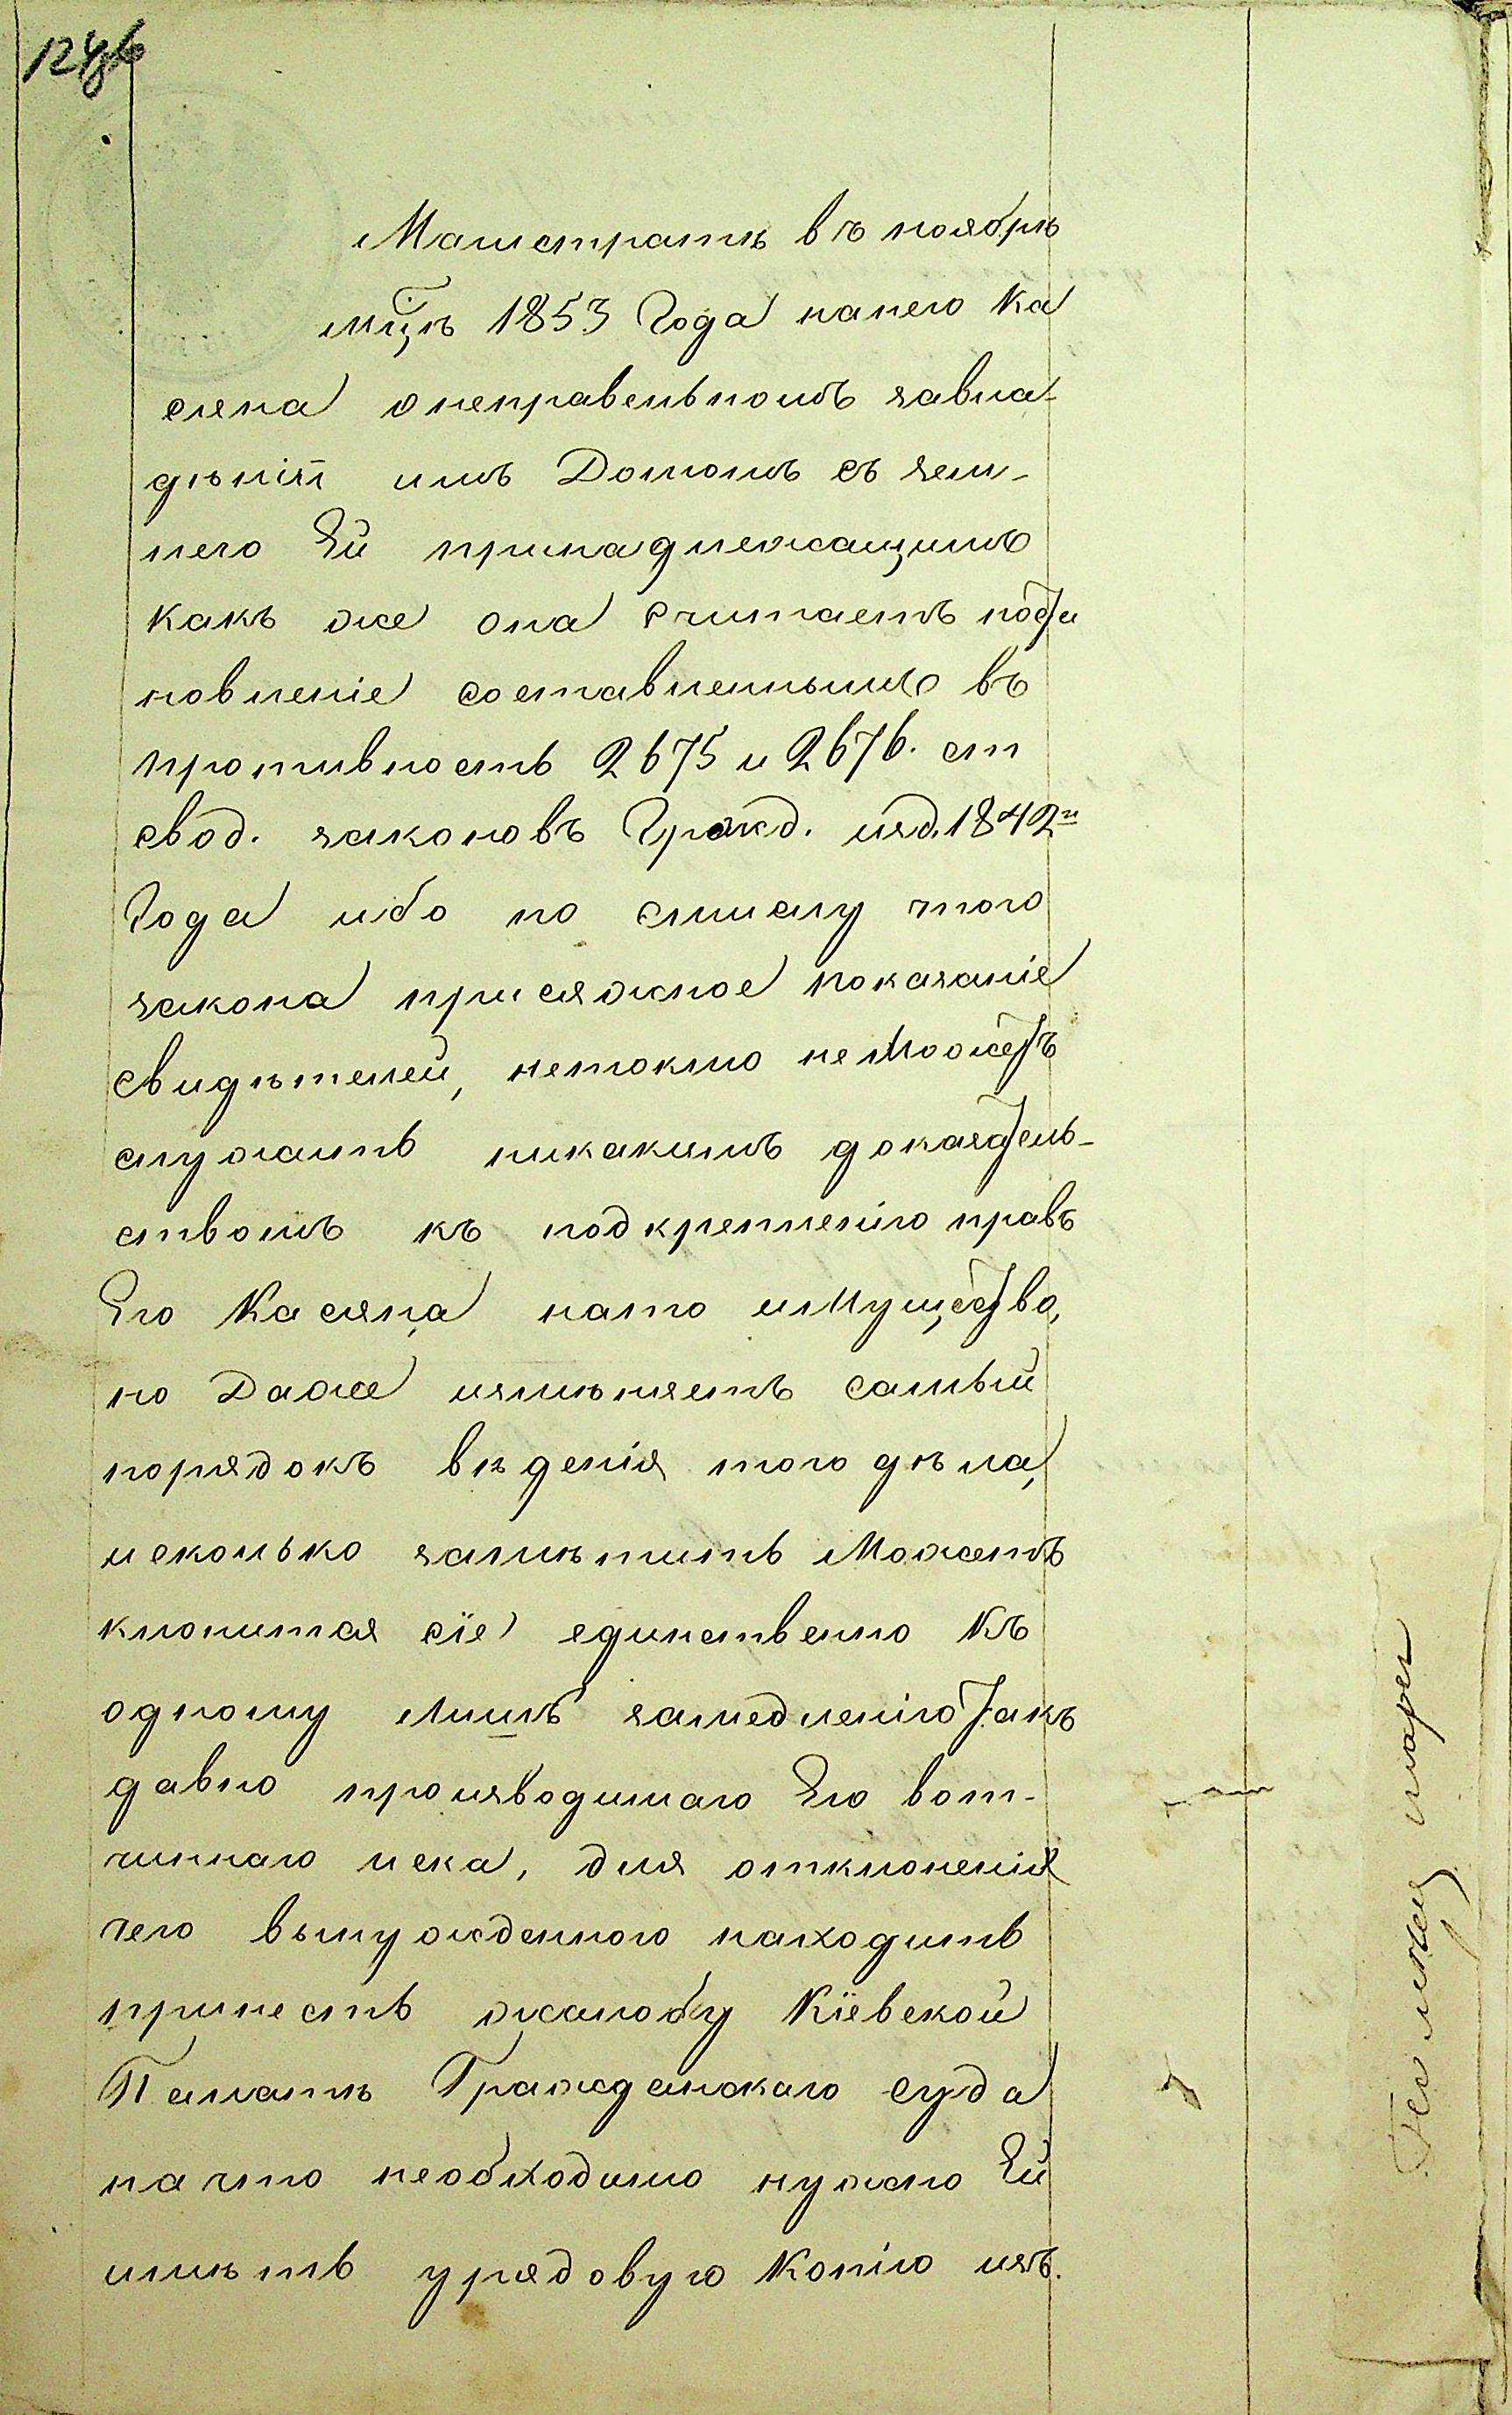 Магистратъ въ ноябрѣ
мцѣ 1853 Года нанего Ка
сяна онеправельномъ завла-
дѣнiи имъ Домомъ съ зем-
лею Ей принадлежащимъ
какъ же она Считаетъ поста
новленіе составленнымъ въ
противность 2675 и 2676. ст
свод. законовъ Гражд. изд. 1842го
Года ибо по смыслу того
закона присяжное показаніе
Свидѣтелей, нетокмо неможетъ
служить никакимъ доказатель-
ствомъ къ подкрепленію правъ
Его Касяна нато имущество,
но Даже измѣняетъ самый
порядокъ вѣденія того дѣла,
исколько замѣтить Можетъ
клонится сіе единственно Къ
одному лишь замедленію такъ
давно производимаго Ею вот-
чиннаго иска, для отклоненія
чего вынужденною находитъ
принесть жалобу Кіевской
Палатѣ Гражданскаго суда
начто необходимо нужно Ей
имѣть урядовую Копію изъ.